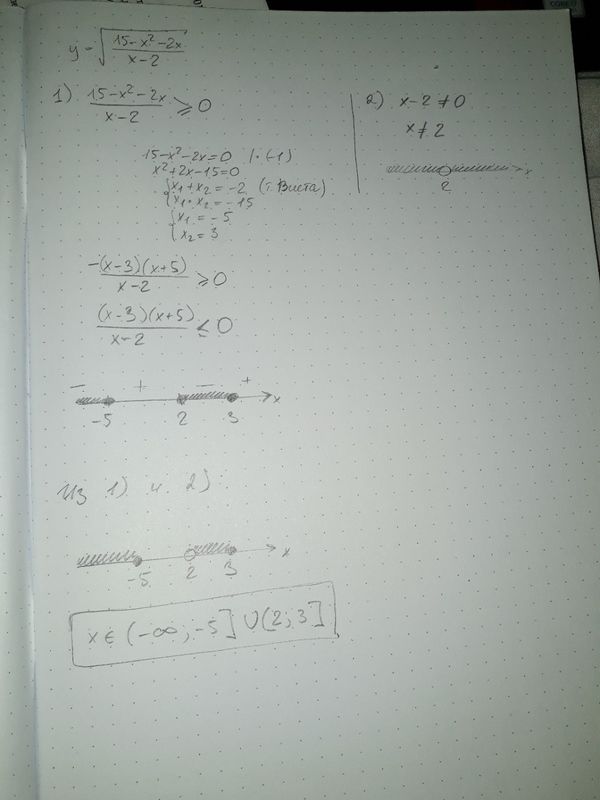 y = √((15-x²-2x)/(x-2))
1) (15-x²-2x)/(x-2) ≥ 0
15-x²-2x=0 |·(-1)
x²+2x-15=0
{x₁+x₂=-2 (т. Виета)
{x₁·x₂=-15
{x₁=-5
{x₂=3
-(x-3)(x+5)/(x-2) ≥ 0
(x-3)(x+5)/(x-2) ≤ 0
- + - +
-5 2 3 x
2) x-2≠0
x≠2
2 x
Из 1) и 2)
-5 2 3 x
x ∈ (-∞; -5] ∪ (2; 3]